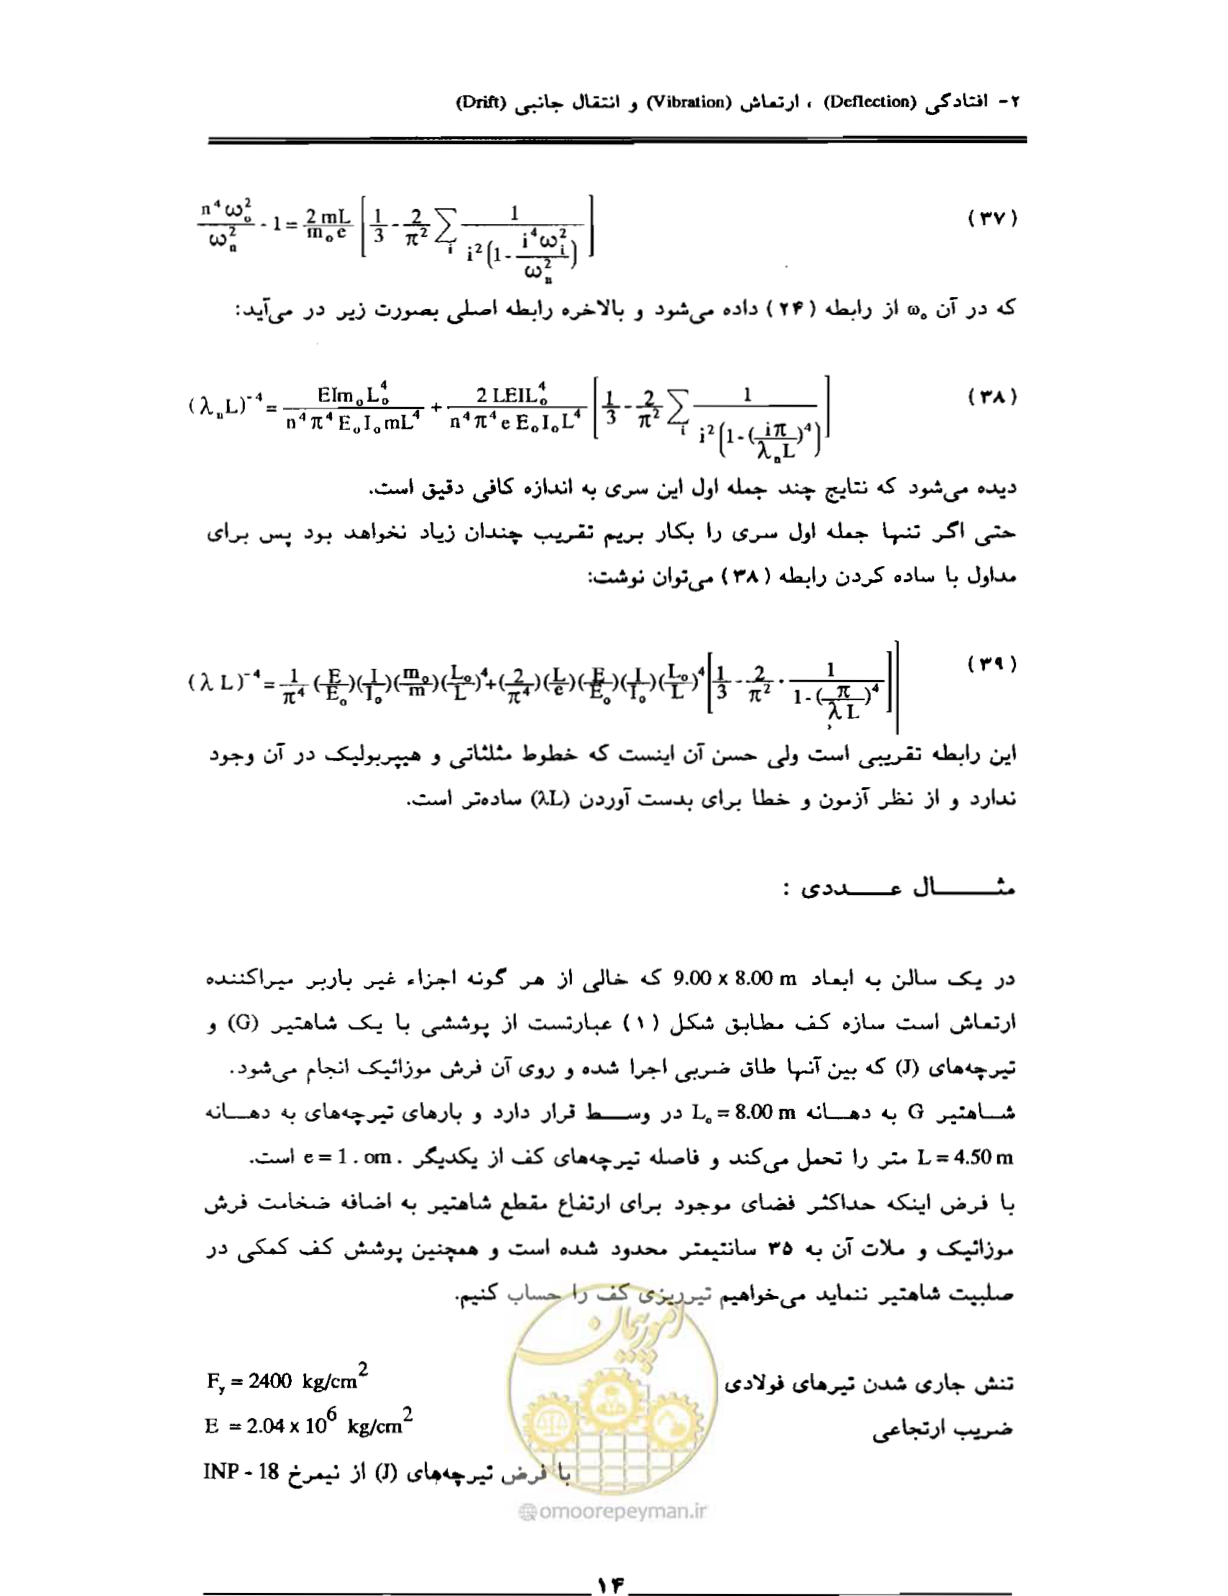 ۲- افتادگی (Deflection) ، ارتعاش (Vibration) و انتقال جانبی (Drift)
n⁴ω₀²/ωₙ² - 1 = 2 mL/m₀e [1/3 - 2/π² ∑ᵢ 1/(i²(1 - i⁴ωᵢ²/ωₙ²))] (۳۷)
که در آن ω₀ از رابطه (۲۴) داده می‌شود و بالاخره رابطه اصلی بصورت زیر در می‌آید:
(λₙL)⁻⁴ = EIm₀L₀⁴/(n⁴π⁴E₀I₀mL⁴) + 2 LEIL₀⁴/(n⁴π⁴e E₀I₀L⁴) [1/3 - 2/π² ∑ᵢ 1/(i²(1-(iπ/λₙL)⁴))] (۳۸)
دیده می‌شود که نتایج چند جمله اول این سری به اندازه کافی دقیق است.
حتی اگر تنها جمله اول سری را بکار بریم تقریب چندان زیاد نخواهد بود پس برای
مداول با ساده کردن رابطه (۳۸) می‌توان نوشت:
(λ L)⁻⁴ = 1/π⁴ (E/E₀)(I/I₀)(m₀/m)(L₀/L)⁴ + (2/π⁴)(L/e)(E/E₀)(I/I₀)(L₀/L)⁴ [1/3 - 2/π² · 1/(1-(π/λ L)⁴)] (۳۹)
این رابطه تقریبی است ولی حسن آن اینست که خطوط مثلثاتی و هیپربولیک در آن وجود
ندارد و از نظر آزمون و خطا برای بدست آوردن (λL) ساده‌تر است.
مثال عددی :
در یک سالن به ابعاد 9.00 x 8.00 m که خالی از هر گونه اجزاء غیر باربر میراکننده
ارتعاش است سازه کف مطابق شکل (۱) عبارتست از پوششی با یک شاهتیر (G) و
تیرچه‌های (J) که بین آنها طاق ضربی اجرا شده و روی آن فرش موزائیک انجام می‌شود.
شاهتیر G به دهانه L₀ = 8.00 m در وسط قرار دارد و بارهای تیرچه‌های به دهانه
L = 4.50 m متر را تحمل می‌کند و فاصله تیرچه‌های کف از یکدیگر e = 1 . om . است.
با فرض اینکه حداکثر فضای موجود برای ارتفاع مقطع شاهتیر به اضافه ضخامت فرش
موزائیک و ملات آن به ۳۵ سانتیمتر محدود شده است و همچنین پوشش کف کمکی در
صلبیت شاهتیر ننماید می‌خواهیم تیرریزی کف را حساب کنیم.
تنش جاری شدن تیرهای فولادی Fy = 2400 kg/cm²
ضریب ارتجاعی E = 2.04 x 10⁶ kg/cm²
با فرض تیرچه‌های (J) از نیمرخ INP - 18
امورپیمان
@omoorepeyman.ir
۱۴